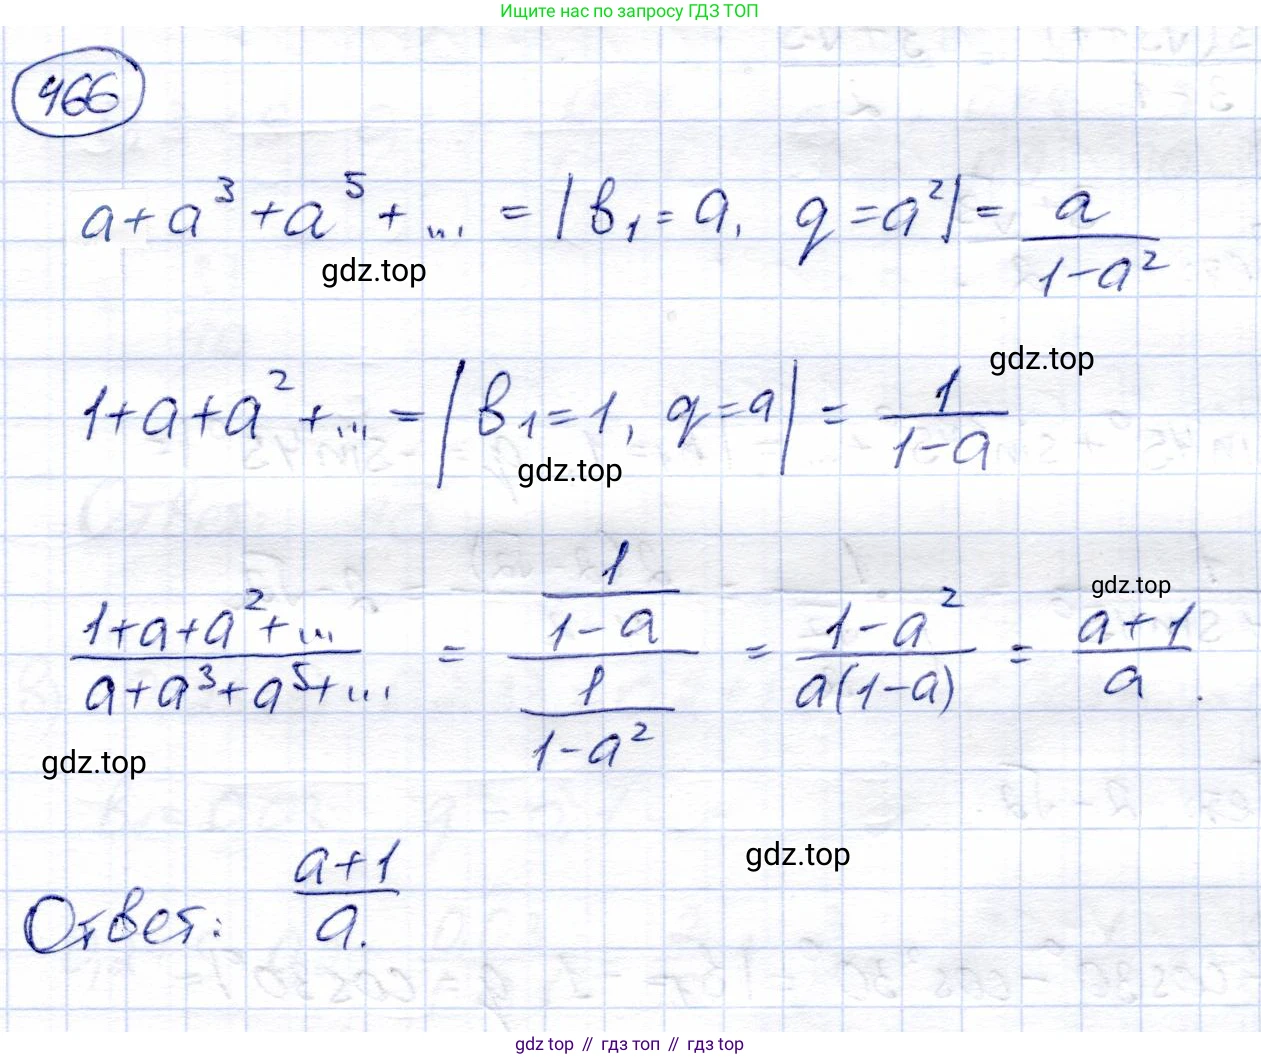 Ищите нас по запросу ГДЗ ТОП
466
a + a³ + a⁵ + ... = | b₁ = a, q = a² | = a/(1-a²)
gdz.top
gdz.top
1 + a + a² + ... = | b₁ = 1, q = a | = 1/(1-a)
gdz.top
gdz.top
(1+a+a²+...)/(a+a³+a⁵+...) = (1/(1-a))/(1/(1-a²)) = (1-a²)/(a(1-a)) = (a+1)/a.
gdz.top
gdz.top
Ответ: (a+1)/a.
gdz top // гдз топ // гдз top